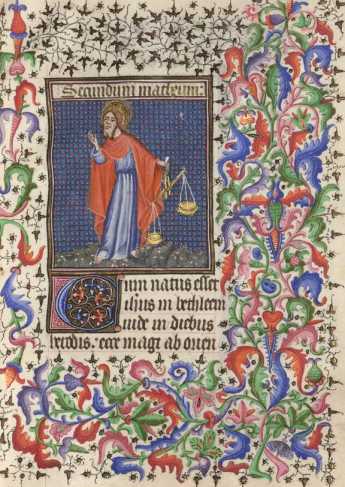 Secundum matheum.
Cum natus esset
ihus in bethleem
iude in diebus
herodis. ecce magi ab orien